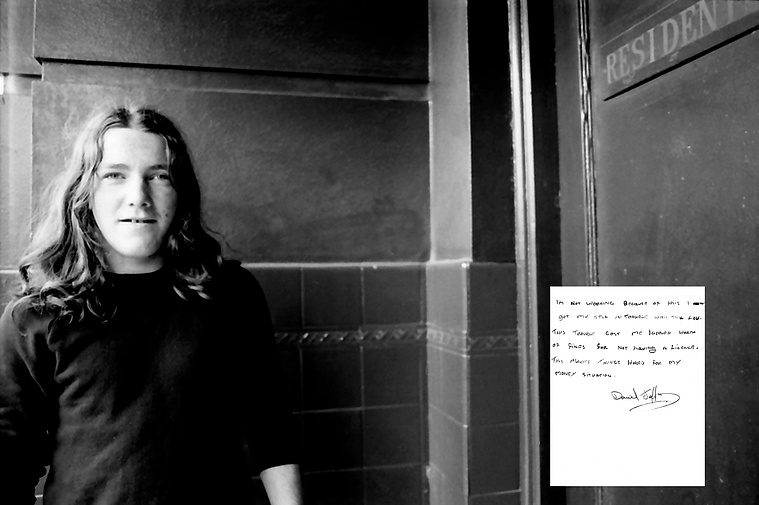 RESIDENT
I'M NOT WORKING BECAUSE OF THIS I
GOT MY SELF IN TROUBLE WITH THE LAW.
THIS TROUBLE COST ME HUNDRED WORTH
OF FINES FOR NOT HAVING A LICENCE.
THIS MAKES THINGS HARD FOR MY
MONEY SITUATION.
Daniel